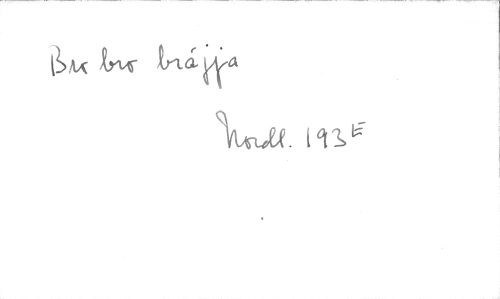 Bro bro brájja
Nordl. 193E